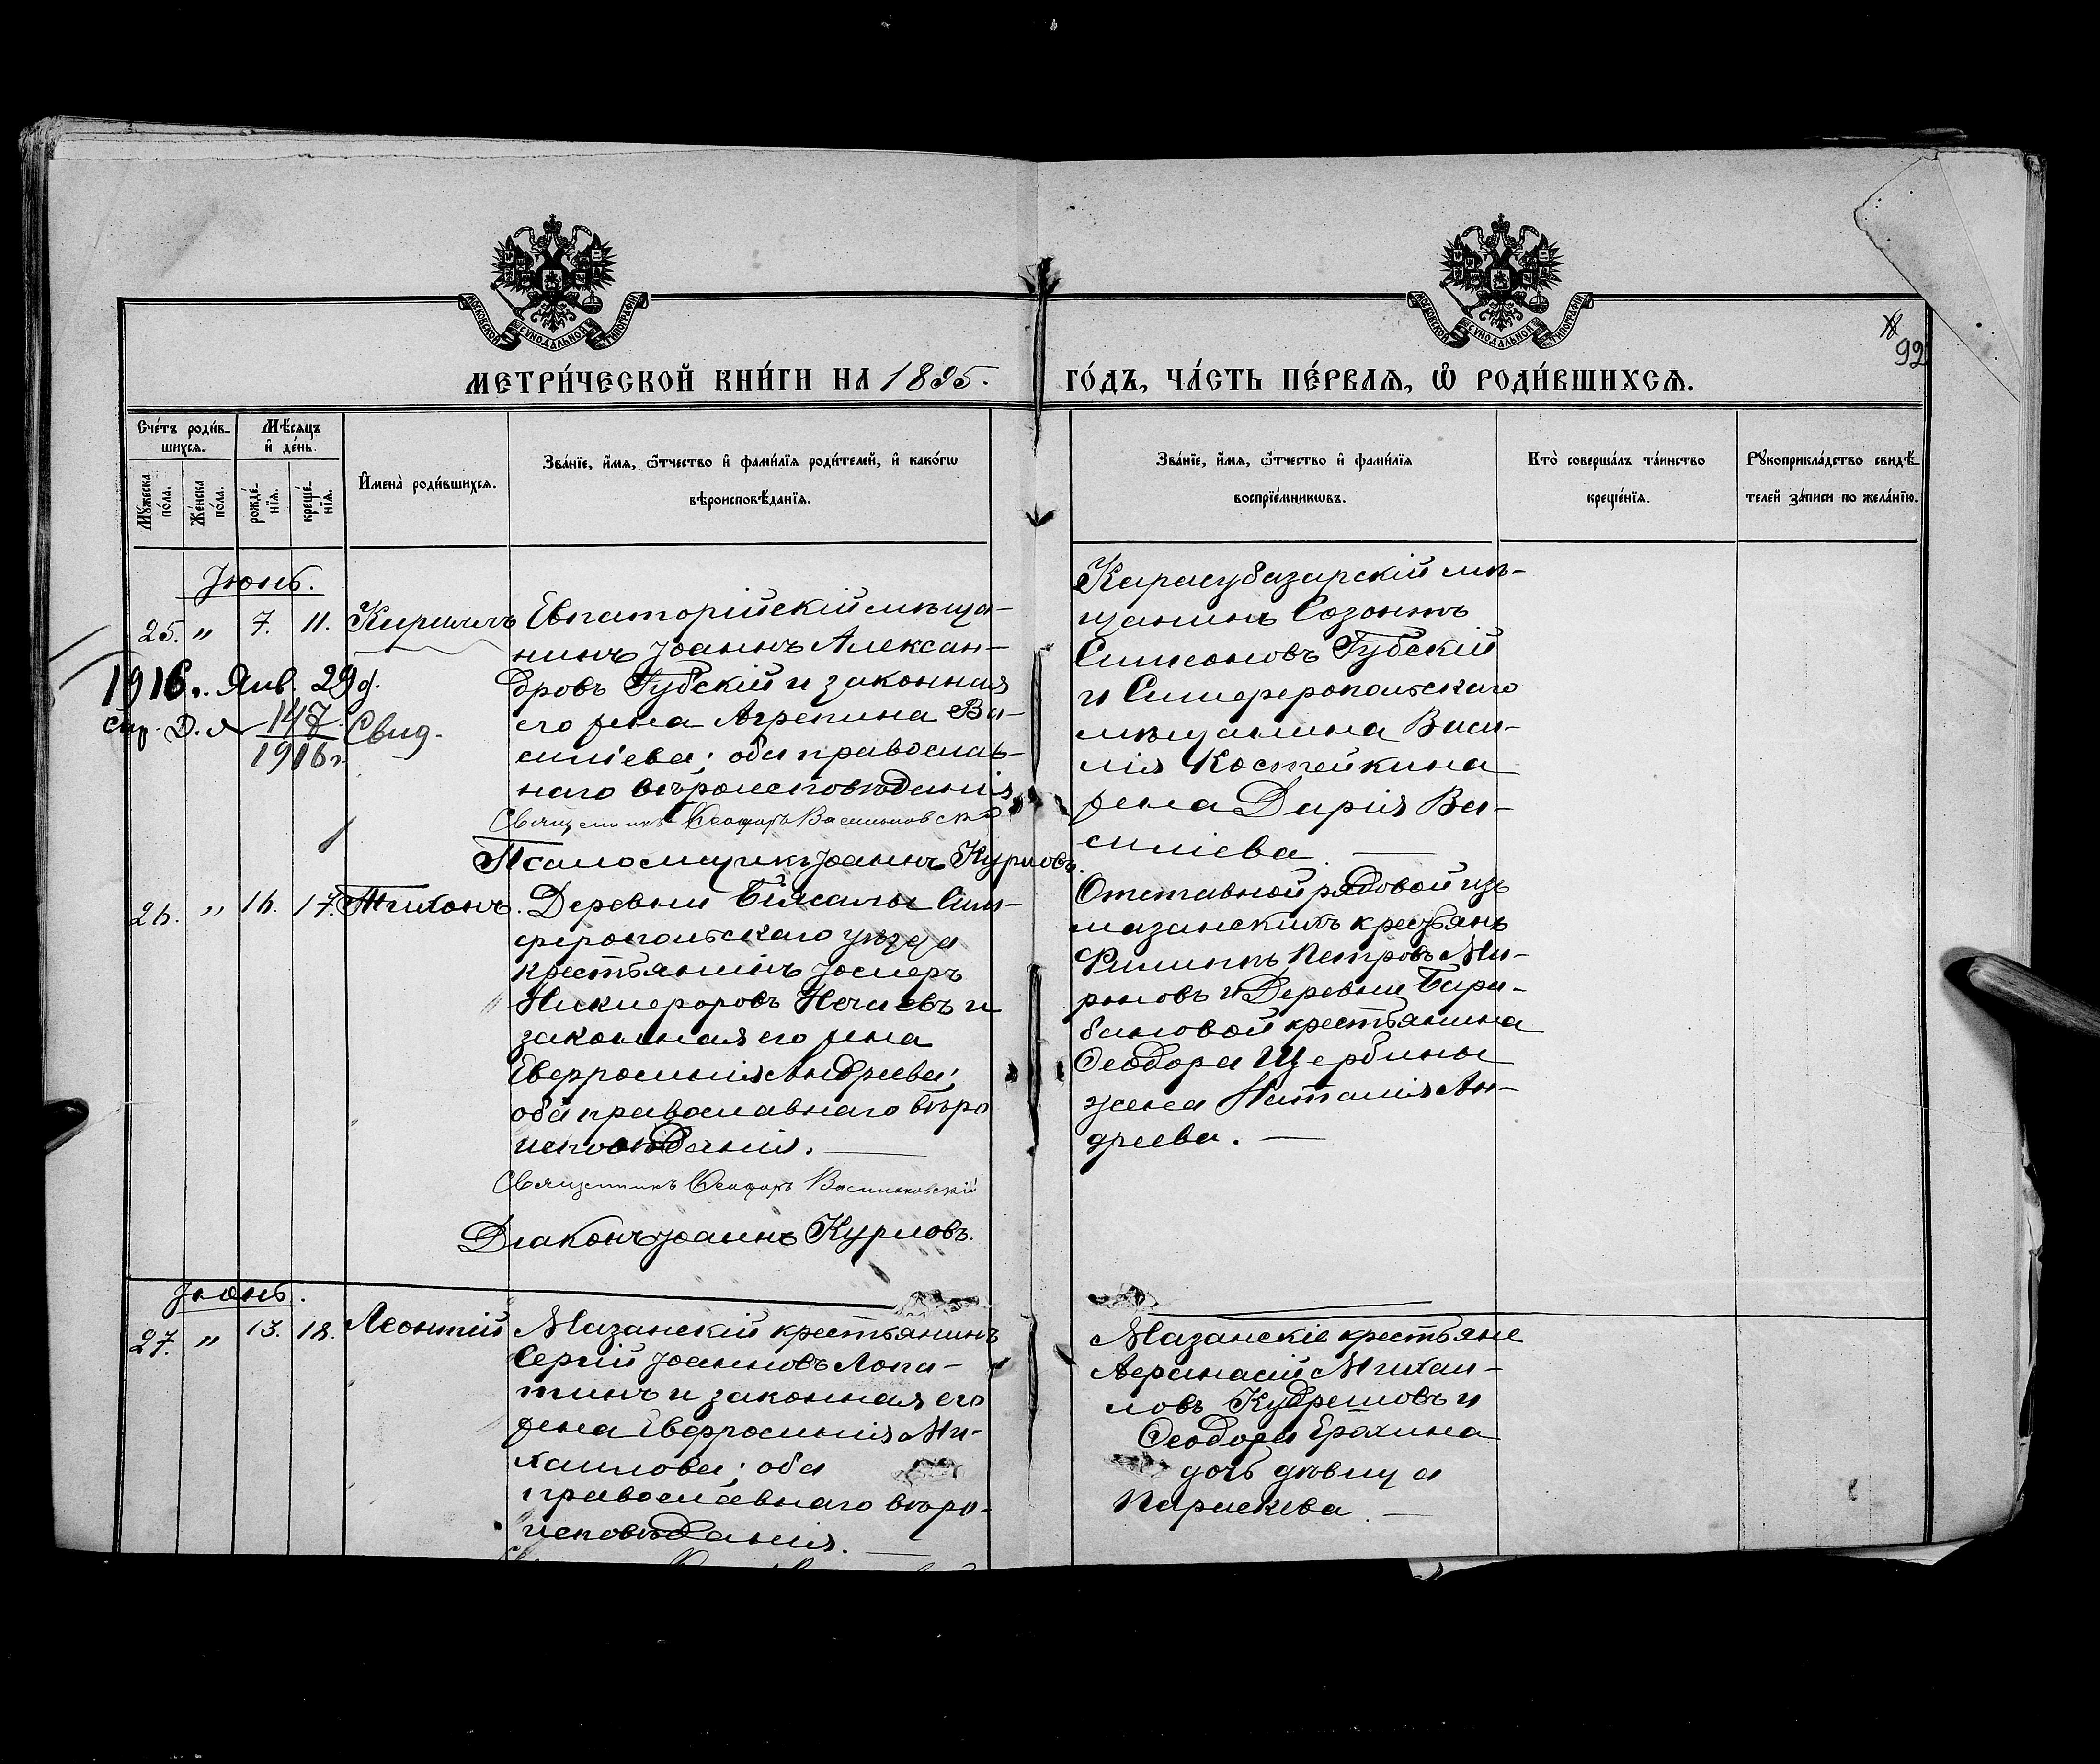 МОСКОВСКОЙ СѴНОДАЛЬНОЙ ТИПОГРАФІИ
МОСКОВСКОЙ СѴНОДАЛЬНОЙ ТИПОГРАФІИ
92
МЕТРИ́ЧЕСКОЙ КНИ́ГИ НА 1895. ГО́ДЪ, ЧА́СТЬ ПЕ́РВАѦ, Ѡ҆ РОДИ́ВШИХСѦ.
Сче́тъ роди́в-
шихсѧ.
Мѣ́сѧцъ
и҆ де́нь.
Мꙋ́жеска
по́ла.
Же́нска
по́ла.
рожде́-
нїѧ.
креще́-
нїѧ.
И҆мена̀ роди́вшихсѧ.
Зва́нїе, и҆́мѧ, ѻ҆́тчество и҆ фами́лїѧ роди́телей, и҆ како́гѡ
вѣроисповѣ́данїѧ.
Зва́нїе, и҆́мѧ, ѻ҆́тчество и҆ фами́лїѧ
воспрїе́мникѡвъ.
Кто̀ соверша́лъ та́инство
креще́нїѧ.
Рꙋкоприкла́дство свидѣ́-
телей за́писи по жела́нїю.
Іюнь.
25. " 7. 11. Кириллъ
Евпаторійскій мѣща-
нинъ Іоаннъ Алексан-
дровъ Губскій и законная
его жена Агрепина Ва-
силіева; оба православ-
наго вѣроисповѣданія
Священникъ Ѳеодоръ Васильковскій
Псаломщикъ Іоаннъ Курловъ.
1916 г. Янв. 29 д.
Д. № 147
1916 г.
Свид.
Карасубазарскій мѣ-
щанинъ Созонтъ
Симоновъ Губскій
и Симферопольскаго
мѣщанина Васи-
лія Костейкина
жена Дарія Ва-
силіева. —
26. " 16. 17. Тихонъ.
Деревни Біясалы Сим-
феропольскаго уѣзда
крестьянинъ Іосифъ
Никифоровъ Нечаевъ и
законная его жена
Евфросинія Андреева;
оба православнаго вѣро
исповѣданія. —
Священникъ Ѳеодоръ Васильковскій
Діаконъ Іоаннъ Курловъ.
Отставной рядовой изъ
мазанскихъ крестьянъ
Филиппъ Петровъ Ми-
роновъ и Деревни Бара-
бановой крестьянина
Ѳеодора Щербины
жена Наталія Ан-
дреева. —
Іюнь.
27. " 13. 18. Леонтій
Мазанскій крестьянинъ
Сергій Іоанновъ Лопа-
тинъ и законная его
жена Евфросинія Ми-
хаилова; оба
православнаго вѣро-
исповѣданія. —
Мазанскіе крестьяне
Аѳанасій Михаи-
ловъ Кудрешовъ и
Ѳеодора Ерохина
дочь дѣвица
Параскева. —